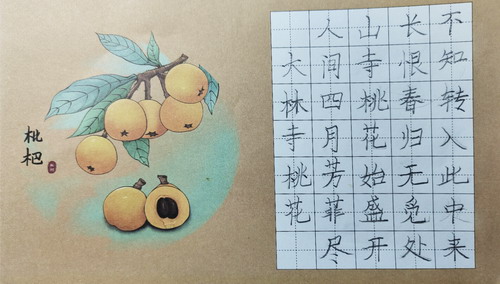 枇杷
大林寺桃花
人间四月芳菲尽
山寺桃花始盛开
长恨春归无觅处
不知转入此中来